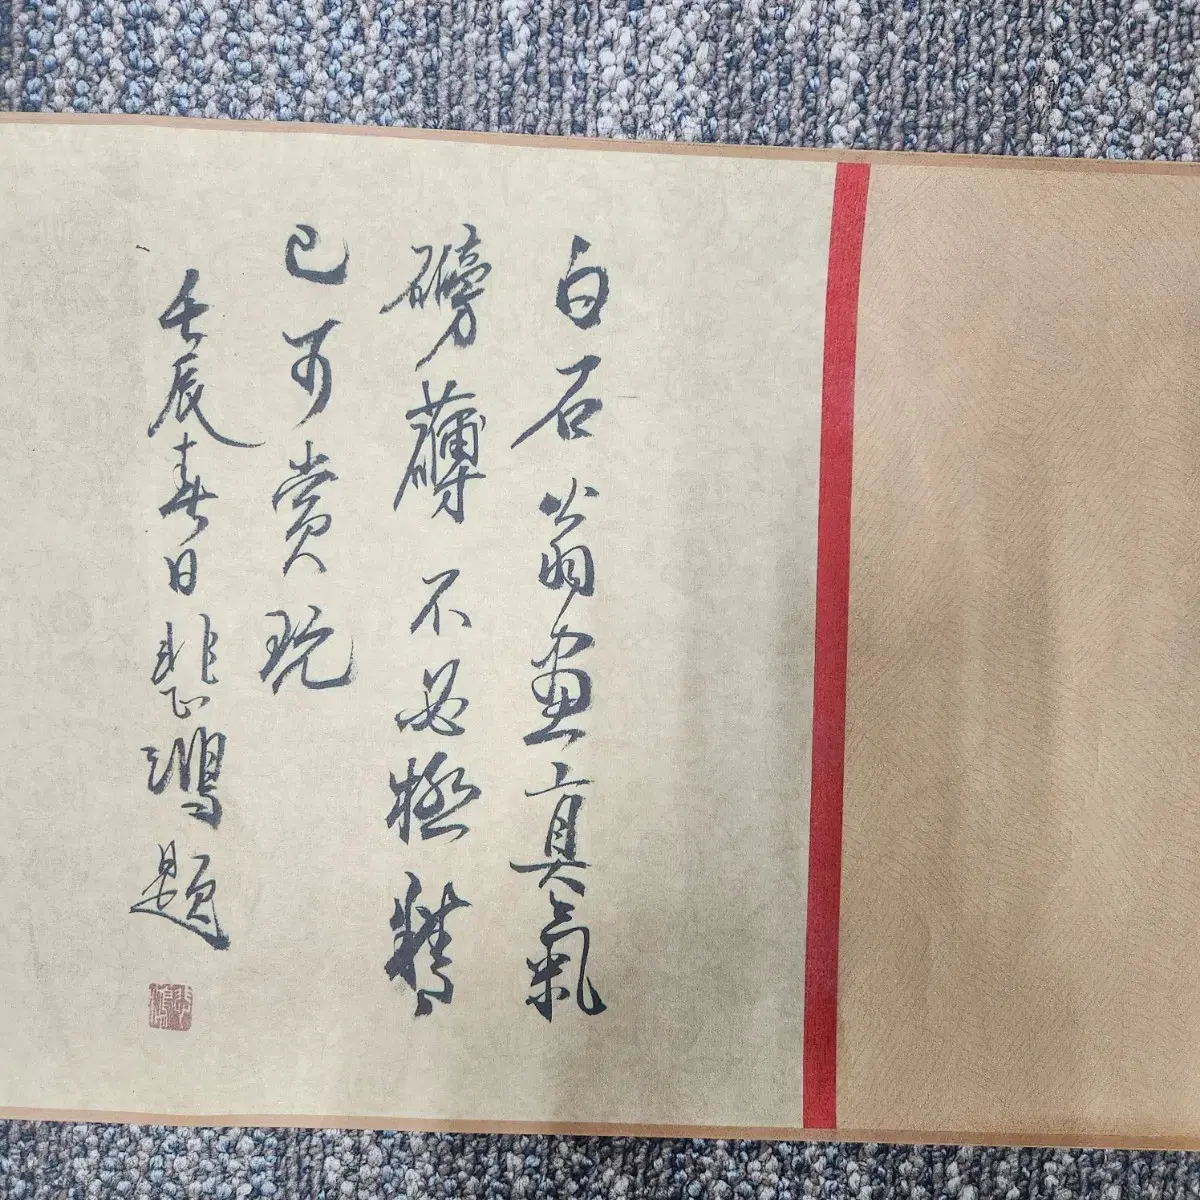 白石翁画真氣
磅礴不必極精
已可賞玩
壬辰春日悲鴻題
悲鴻